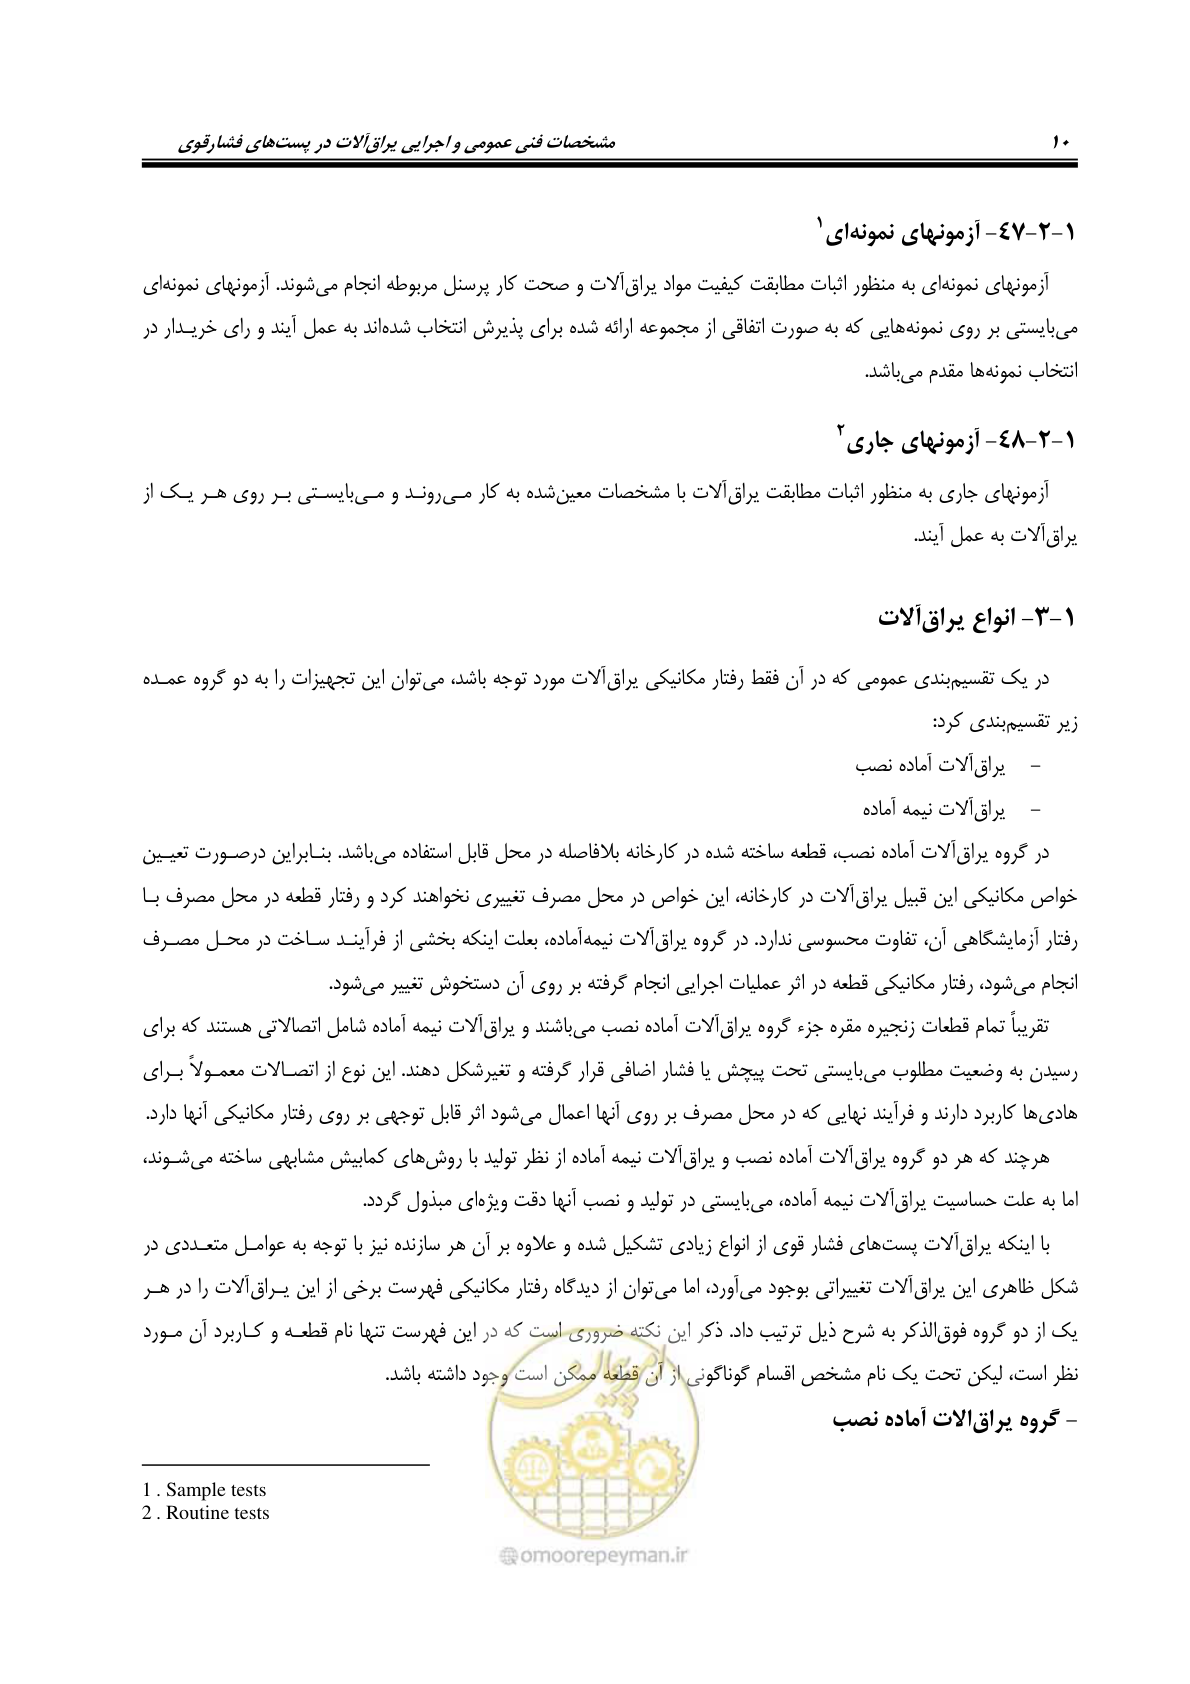 ۱۰ مشخصات فنی عمومی و اجرایی یراق‌آلات در پست‌های فشارقوی
۱-۲-۴۷- آزمونهای نمونه‌ای۱
آزمونهای نمونه‌ای به منظور اثبات مطابقت کیفیت مواد یراق‌آلات و صحت کار پرسنل مربوطه انجام می‌شوند. آزمونهای نمونه‌ای
می‌بایستی بر روی نمونه‌هایی که به صورت اتفاقی از مجموعه ارائه شده برای پذیرش انتخاب شده‌اند به عمل آیند و رای خریـدار در
انتخاب نمونه‌ها مقدم می‌باشد.
۱-۲-۴۸- آزمونهای جاری۲
آزمونهای جاری به منظور اثبات مطابقت یراق‌آلات با مشخصات معین‌شده به کار مـی‌رونـد و مـی‌بایسـتی بـر روی هـر یـک از
یراق‌آلات به عمل آیند.
۱-۳- انواع یراق‌آلات
در یک تقسیم‌بندی عمومی که در آن فقط رفتار مکانیکی یراق‌آلات مورد توجه باشد، می‌توان این تجهیزات را به دو گروه عمـده
زیر تقسیم‌بندی کرد:
- یراق‌آلات آماده نصب
- یراق‌آلات نیمه آماده
در گروه یراق‌آلات آماده نصب، قطعه ساخته شده در کارخانه بلافاصله در محل قابل استفاده می‌باشد. بنـابراین درصـورت تعیـین
خواص مکانیکی این قبیل یراق‌آلات در کارخانه، این خواص در محل مصرف تغییری نخواهند کرد و رفتار قطعه در محل مصرف بـا
رفتار آزمایشگاهی آن، تفاوت محسوسی ندارد. در گروه یراق‌آلات نیمه‌آماده، بعلت اینکه بخشی از فرآینـد سـاخت در محـل مصـرف
انجام می‌شود، رفتار مکانیکی قطعه در اثر عملیات اجرایی انجام گرفته بر روی آن دستخوش تغییر می‌شود.
تقریباً تمام قطعات زنجیره مقره جزء گروه یراق‌آلات آماده نصب می‌باشند و یراق‌آلات نیمه آماده شامل اتصالاتی هستند که برای
رسیدن به وضعیت مطلوب می‌بایستی تحت پیچش یا فشار اضافی قرار گرفته و تغیرشکل دهند. این نوع از اتصـالات معمـولاً بـرای
هادی‌ها کاربرد دارند و فرآیند نهایی که در محل مصرف بر روی آنها اعمال می‌شود اثر قابل توجهی بر روی رفتار مکانیکی آنها دارد.
هرچند که هر دو گروه یراق‌آلات آماده نصب و یراق‌آلات نیمه آماده از نظر تولید با روش‌های کمابیش مشابهی ساخته می‌شـوند،
اما به علت حساسیت یراق‌آلات نیمه آماده، می‌بایستی در تولید و نصب آنها دقت ویژه‌ای مبذول گردد.
با اینکه یراق‌آلات پست‌های فشار قوی از انواع زیادی تشکیل شده و علاوه بر آن هر سازنده نیز با توجه به عوامـل متعـددی در
شکل ظاهری این یراق‌آلات تغییراتی بوجود می‌آورد، اما می‌توان از دیدگاه رفتار مکانیکی فهرست برخی از این یـراق‌آلات را در هـر
یک از دو گروه فوق‌الذکر به شرح ذیل ترتیب داد. ذکر این نکته ضروری است که در این فهرست تنها نام قطعـه و کـاربرد آن مـورد
نظر است، لیکن تحت یک نام مشخص اقسام گوناگونی از آن قطعه ممکن است وجود داشته باشد.
- گروه یراق‌الات آماده نصب
1 . Sample tests
2 . Routine tests
امور پیمان
@omoorepeyman.ir